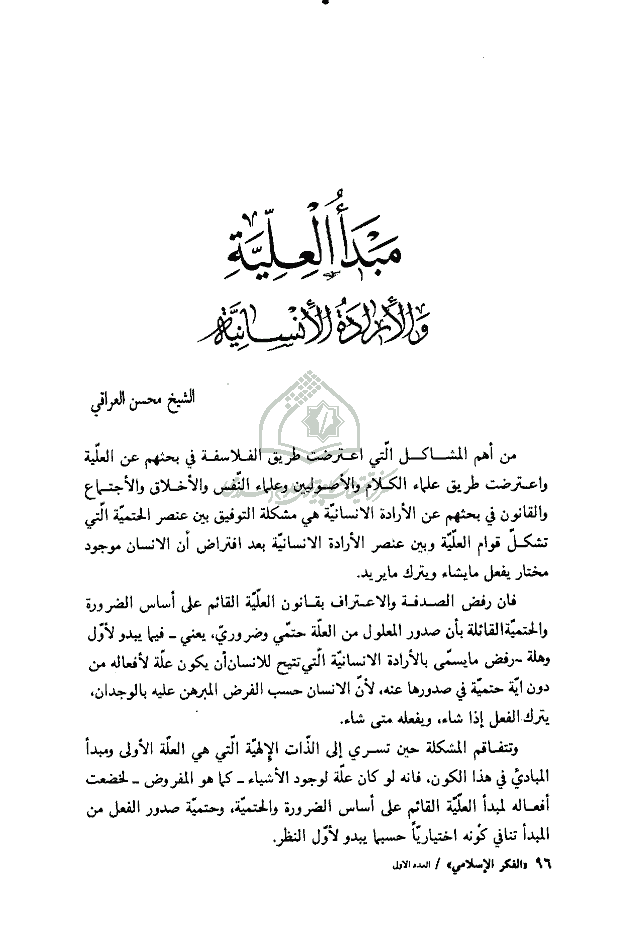 مَبْدَأُ الْعِلِّيَّةِ
وَالأرادَةُ الأنْسانِيَّة
الشيخ محسن العراقي
من أهم المشاكل الّتي اعترضت طريق الفلاسفة في بحثهم عن العلّية
واعترضت طريق علماء الكلام والأصوليين وعلماء النّفس والأخلاق والأجتماع
والقانون في بحثهم عن الأرادة الانسانيّة هي مشكلة التوفيق بين عنصر الحتميّة الّتي
تشكلّ قوام العلّيّة وبين عنصر الأرادة الانسانيّة بعد افتراض أن الانسان موجود
مختار يفعل مايشاء ويترك مايريد.
فان رفض الصدفة والاعتراف بقانون العلّيّة القائم على أساس الضرورة
والحتميّة القائلة بأن صدور المعلول من العلّة حتمّي وضروريّ، يعني - فيما يبدو لأوّل
وهلة - رفض مايسمّى بالأرادة الانسانيّة الّتي تتيح للانسان أن يكون علّة لأفعاله من
دون اية حتميّة في صدورها عنه، لأنّ الانسان حسب الفرض المبرهن عليه بالوجدان،
يترك الفعل إذا شاء، ويفعله متى شاء.
وتتفاقم المشكلة حين تسري إلى الذّات الإلهيّة الّتي هي العلّة الأولى ومبدأ
المباديّ في هذا الكون، فانه لو كان علّة لوجود الأشياء - كما هو المفروض - لخضعت
أفعاله لمبدأ العلّيّة القائم على أساس الضرورة والحتميّة، وحتميّة صدور الفعل من
المبدأ تنافي كونه اختياريّاً حسبما يبدو لأوّل النظر.
٩٦ «الفكر الإسلامي» / العدد الاول